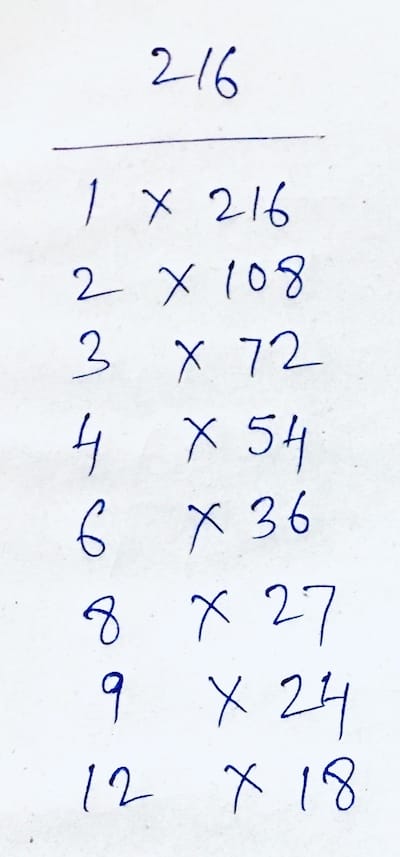 216
1 × 216
2 × 108
3 × 72
4 × 54
6 × 36
8 × 27
9 × 24
12 × 18